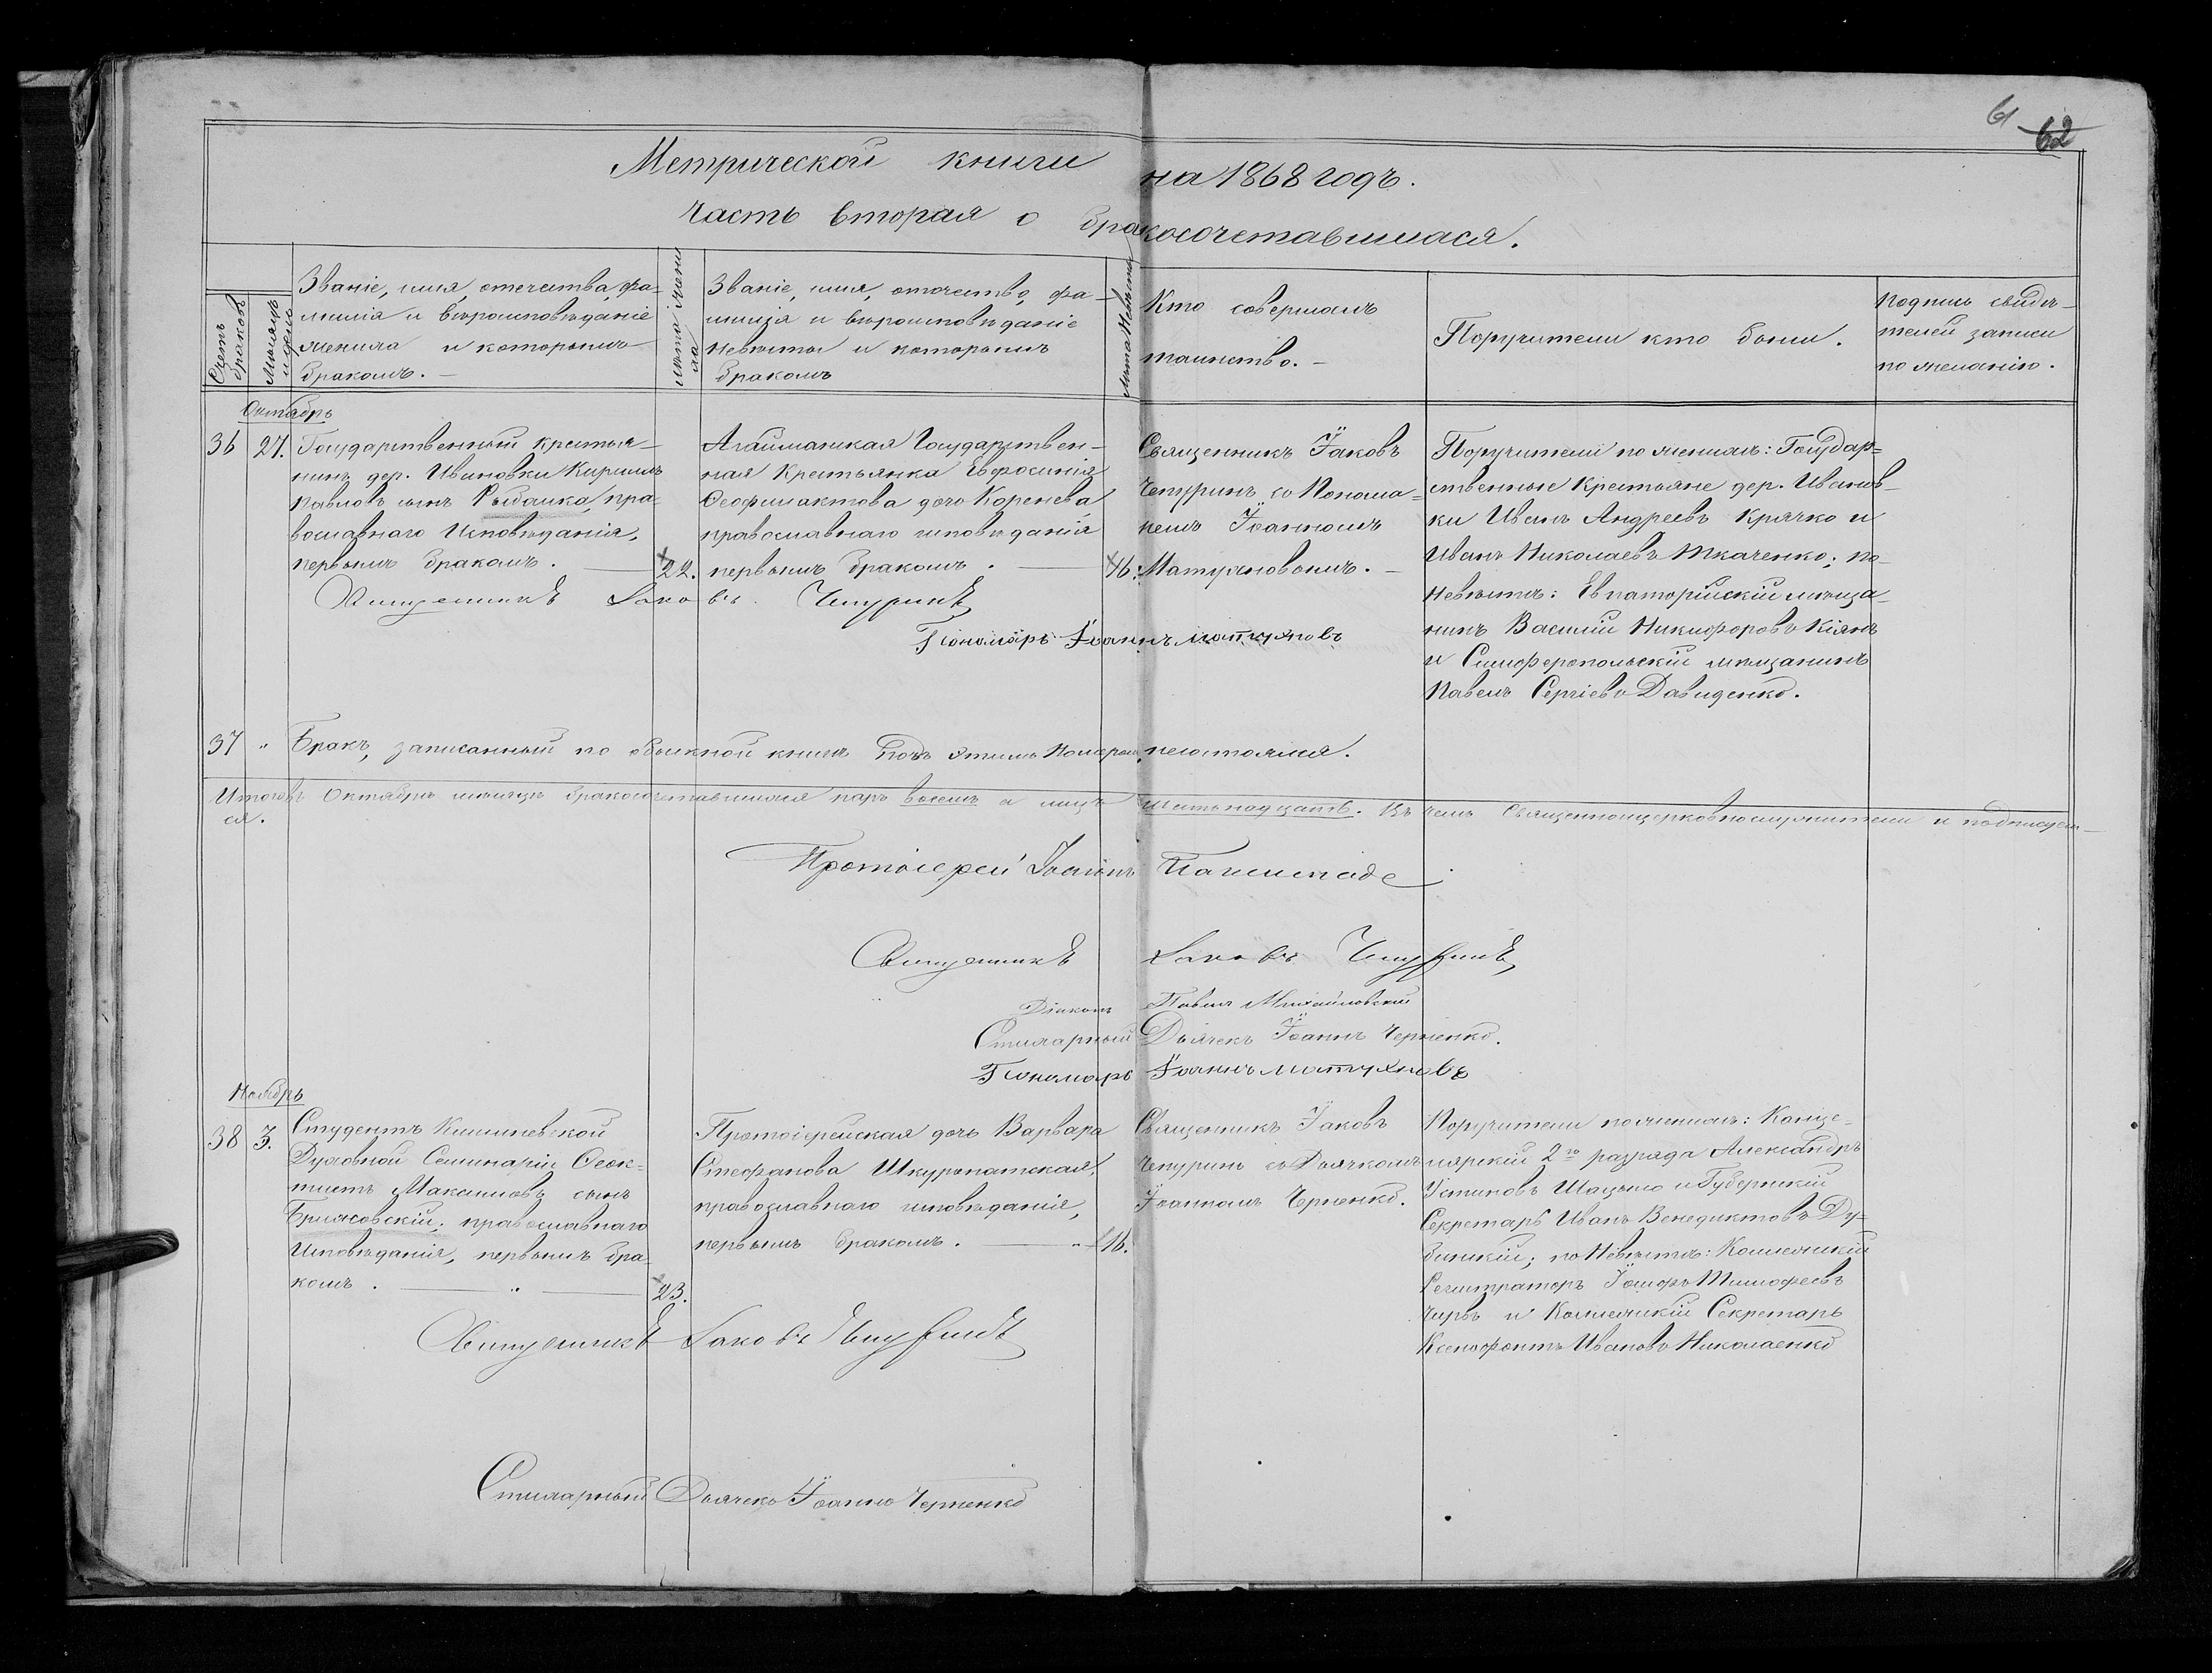 61 62
Метрической книги на 1868 годъ.
Часть вторая о бракосочетавшихся.
Счетъ браковъ
Мѣсяцъ и день
Званіе, имя, отечество, фа-
милія и вѣроисповѣданіе
жениха и которымъ
бракомъ. —
Лѣта жени
ха
Званіе, имя, отечество, фа-
милія и вѣроисповѣданіе
невѣсты и которымъ
бракомъ
Лѣта Невѣсты
Кто совершалъ
таинство. —
Поручители кто были.
Подпись свидѣ-
телей записи
по желанію.
Октябрь
36 27. Государственный крестья-
нинъ дер. Ивановки Кириллъ
Павловъ сынъ Рыбалка, пра-
вославнаго Исповѣданія,
первымъ бракомъ. — 22.
Агайманская Государствен-
ная Крестьянка Евфросинія
Феофилактова дочь Коренева
православнаго исповѣданія
первымъ бракомъ. — 16.
Священникъ Іаковъ
Чепуринъ съ Понома-
ремъ Іоанномъ
Матухновымъ. —
Поручители по женихѣ: Государ-
ственные Крестьяне дер. Иванов-
ки Иванъ Андреевъ Крячко и
Иванъ Николаевъ Ткаченко; по
Невѣстѣ: Евпаторійскій мѣща-
нинъ Василій Никифоровъ Кіянъ
и Симферопольскій мѣщанинъ
Павелъ Сергіевъ Давиденко.
Священникъ Іаковъ Чепуринъ
Пономарь Іоаннъ Матухновъ
37 " Бракъ, записанный по обыскной книгѣ подъ этимъ Номеромъ, несостоялся.
Итого въ Октябрѣ мѣсяцѣ бракосочетавшихся паръ восемь а лицъ шестьнадцать. Въ чемъ Священноцерковнослужители и подписуем-
ся.
Протоіерей Іоаннъ
Священникъ Іаковъ Чепуринъ
Діаконъ Павелъ Михайловскій
Стихарный Дьячекъ Іоаннъ Черненко.
Пономарь Іоаннъ Матухновъ
Ноябрь
38 3. Студентъ Кишиневской
Духовной Семинаріи Феок-
тистъ Максимовъ сынъ
Бриховскій; православнаго
Исповѣданія, первымъ бра-
комъ. — " — 23.
Протоіерейская дочь Варвара
Стефанова Шкуропатская,
православнаго исповѣданія,
первымъ бракомъ. — " 16.
Священникъ Іаковъ
Чепуринъ съ Дьячкомъ
Іоанномъ Черненко.
Поручители по женихѣ: Канце-
лярскій 2го разряда Александръ
Устиновъ Шацько и Губернскій
Секретарь Иванъ Венедиктовъ Ду-
бицкій; по Невѣстѣ: Коллежскій
Регистраторъ Іосифъ Тимофеевъ
Чирвъ и Коллежскій Секретарь
Ксенофонтъ Ивановъ Николаенко
Священникъ Іаковъ Чепуринъ
Стихарный Дьячекъ Іоаннъ Черненко